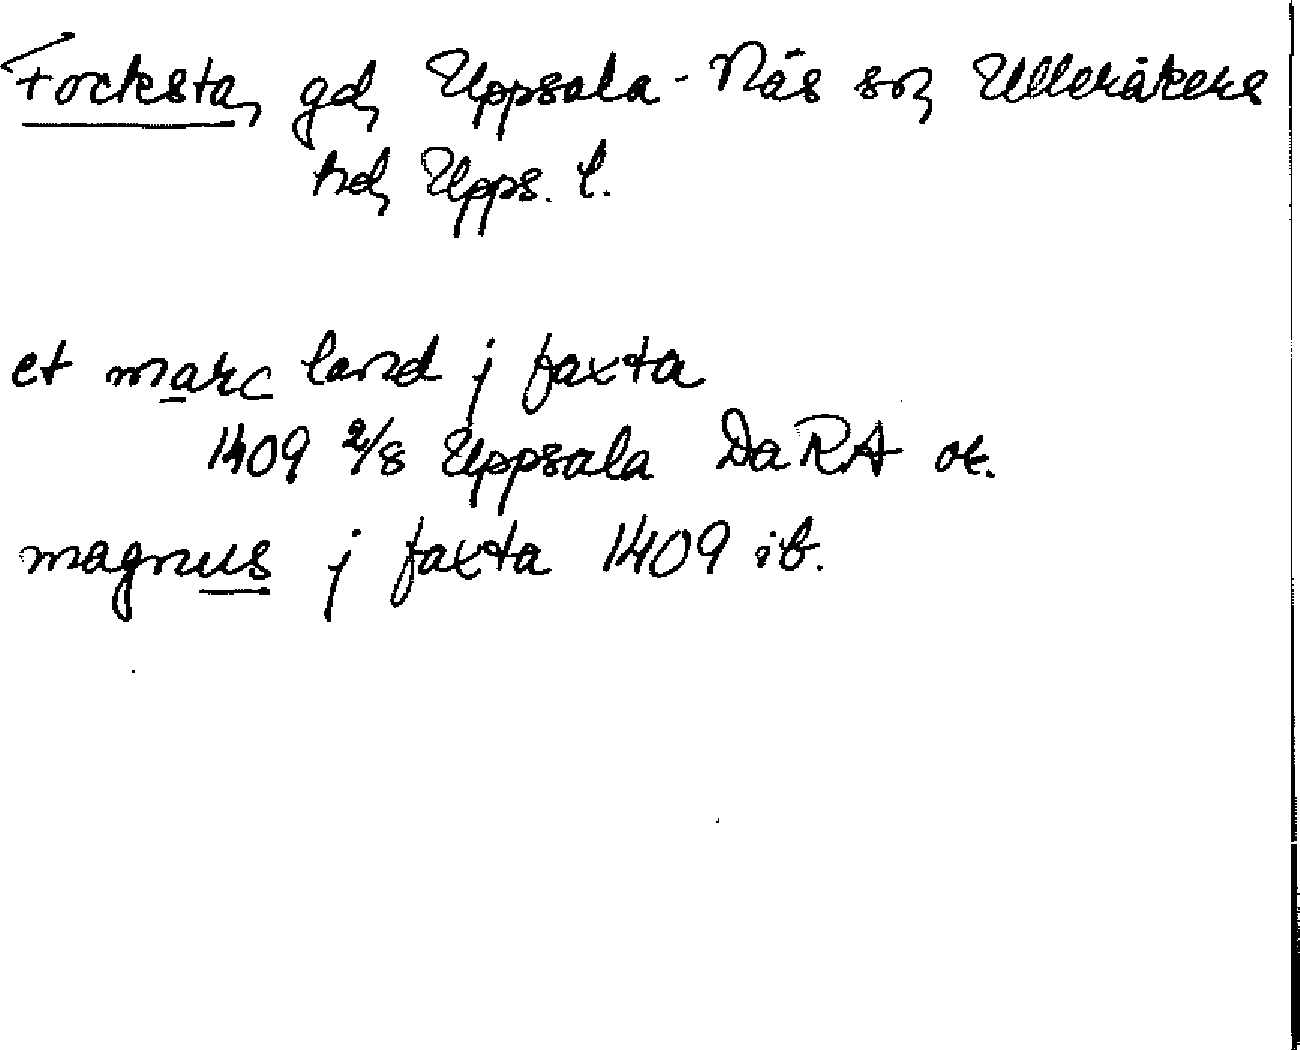 Focksta, gd, Uppsala-Näs sn, Ulleråkers
hd, Upps. l.
et marc land j faxta
1409 2/8 Uppsala DaRA or.
magnus j faxta 1409 ib.